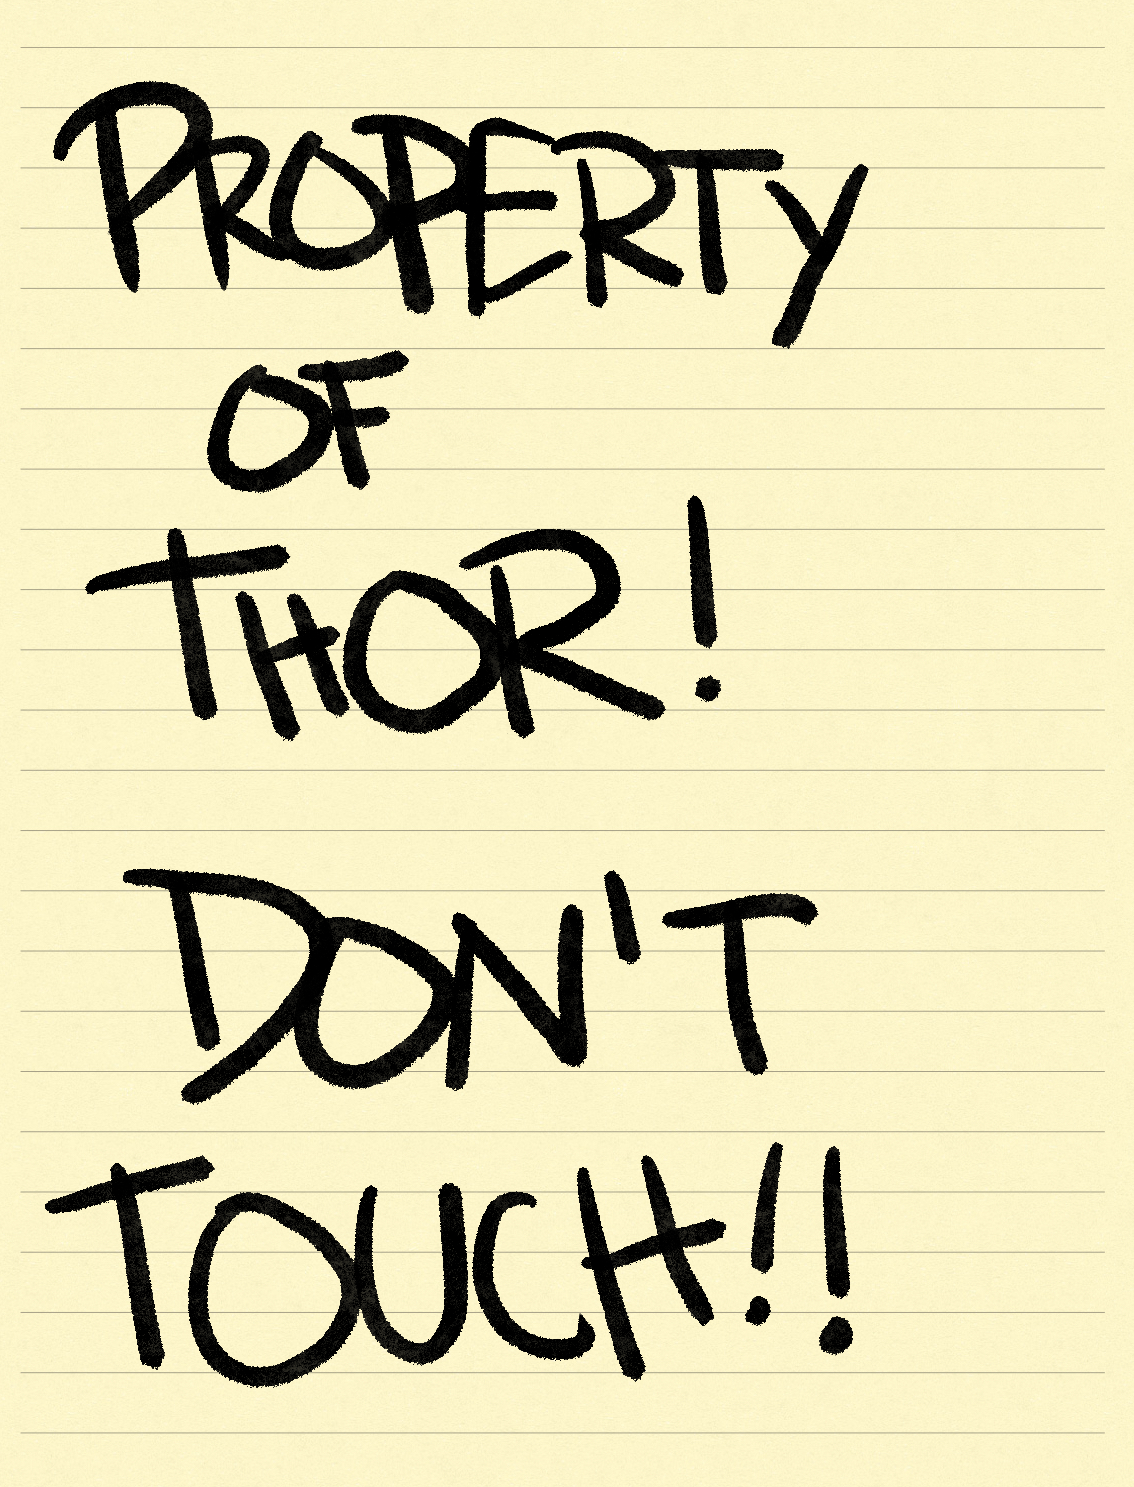 PROPERTY
OF
THOR!
DON'T
TOUCH!!